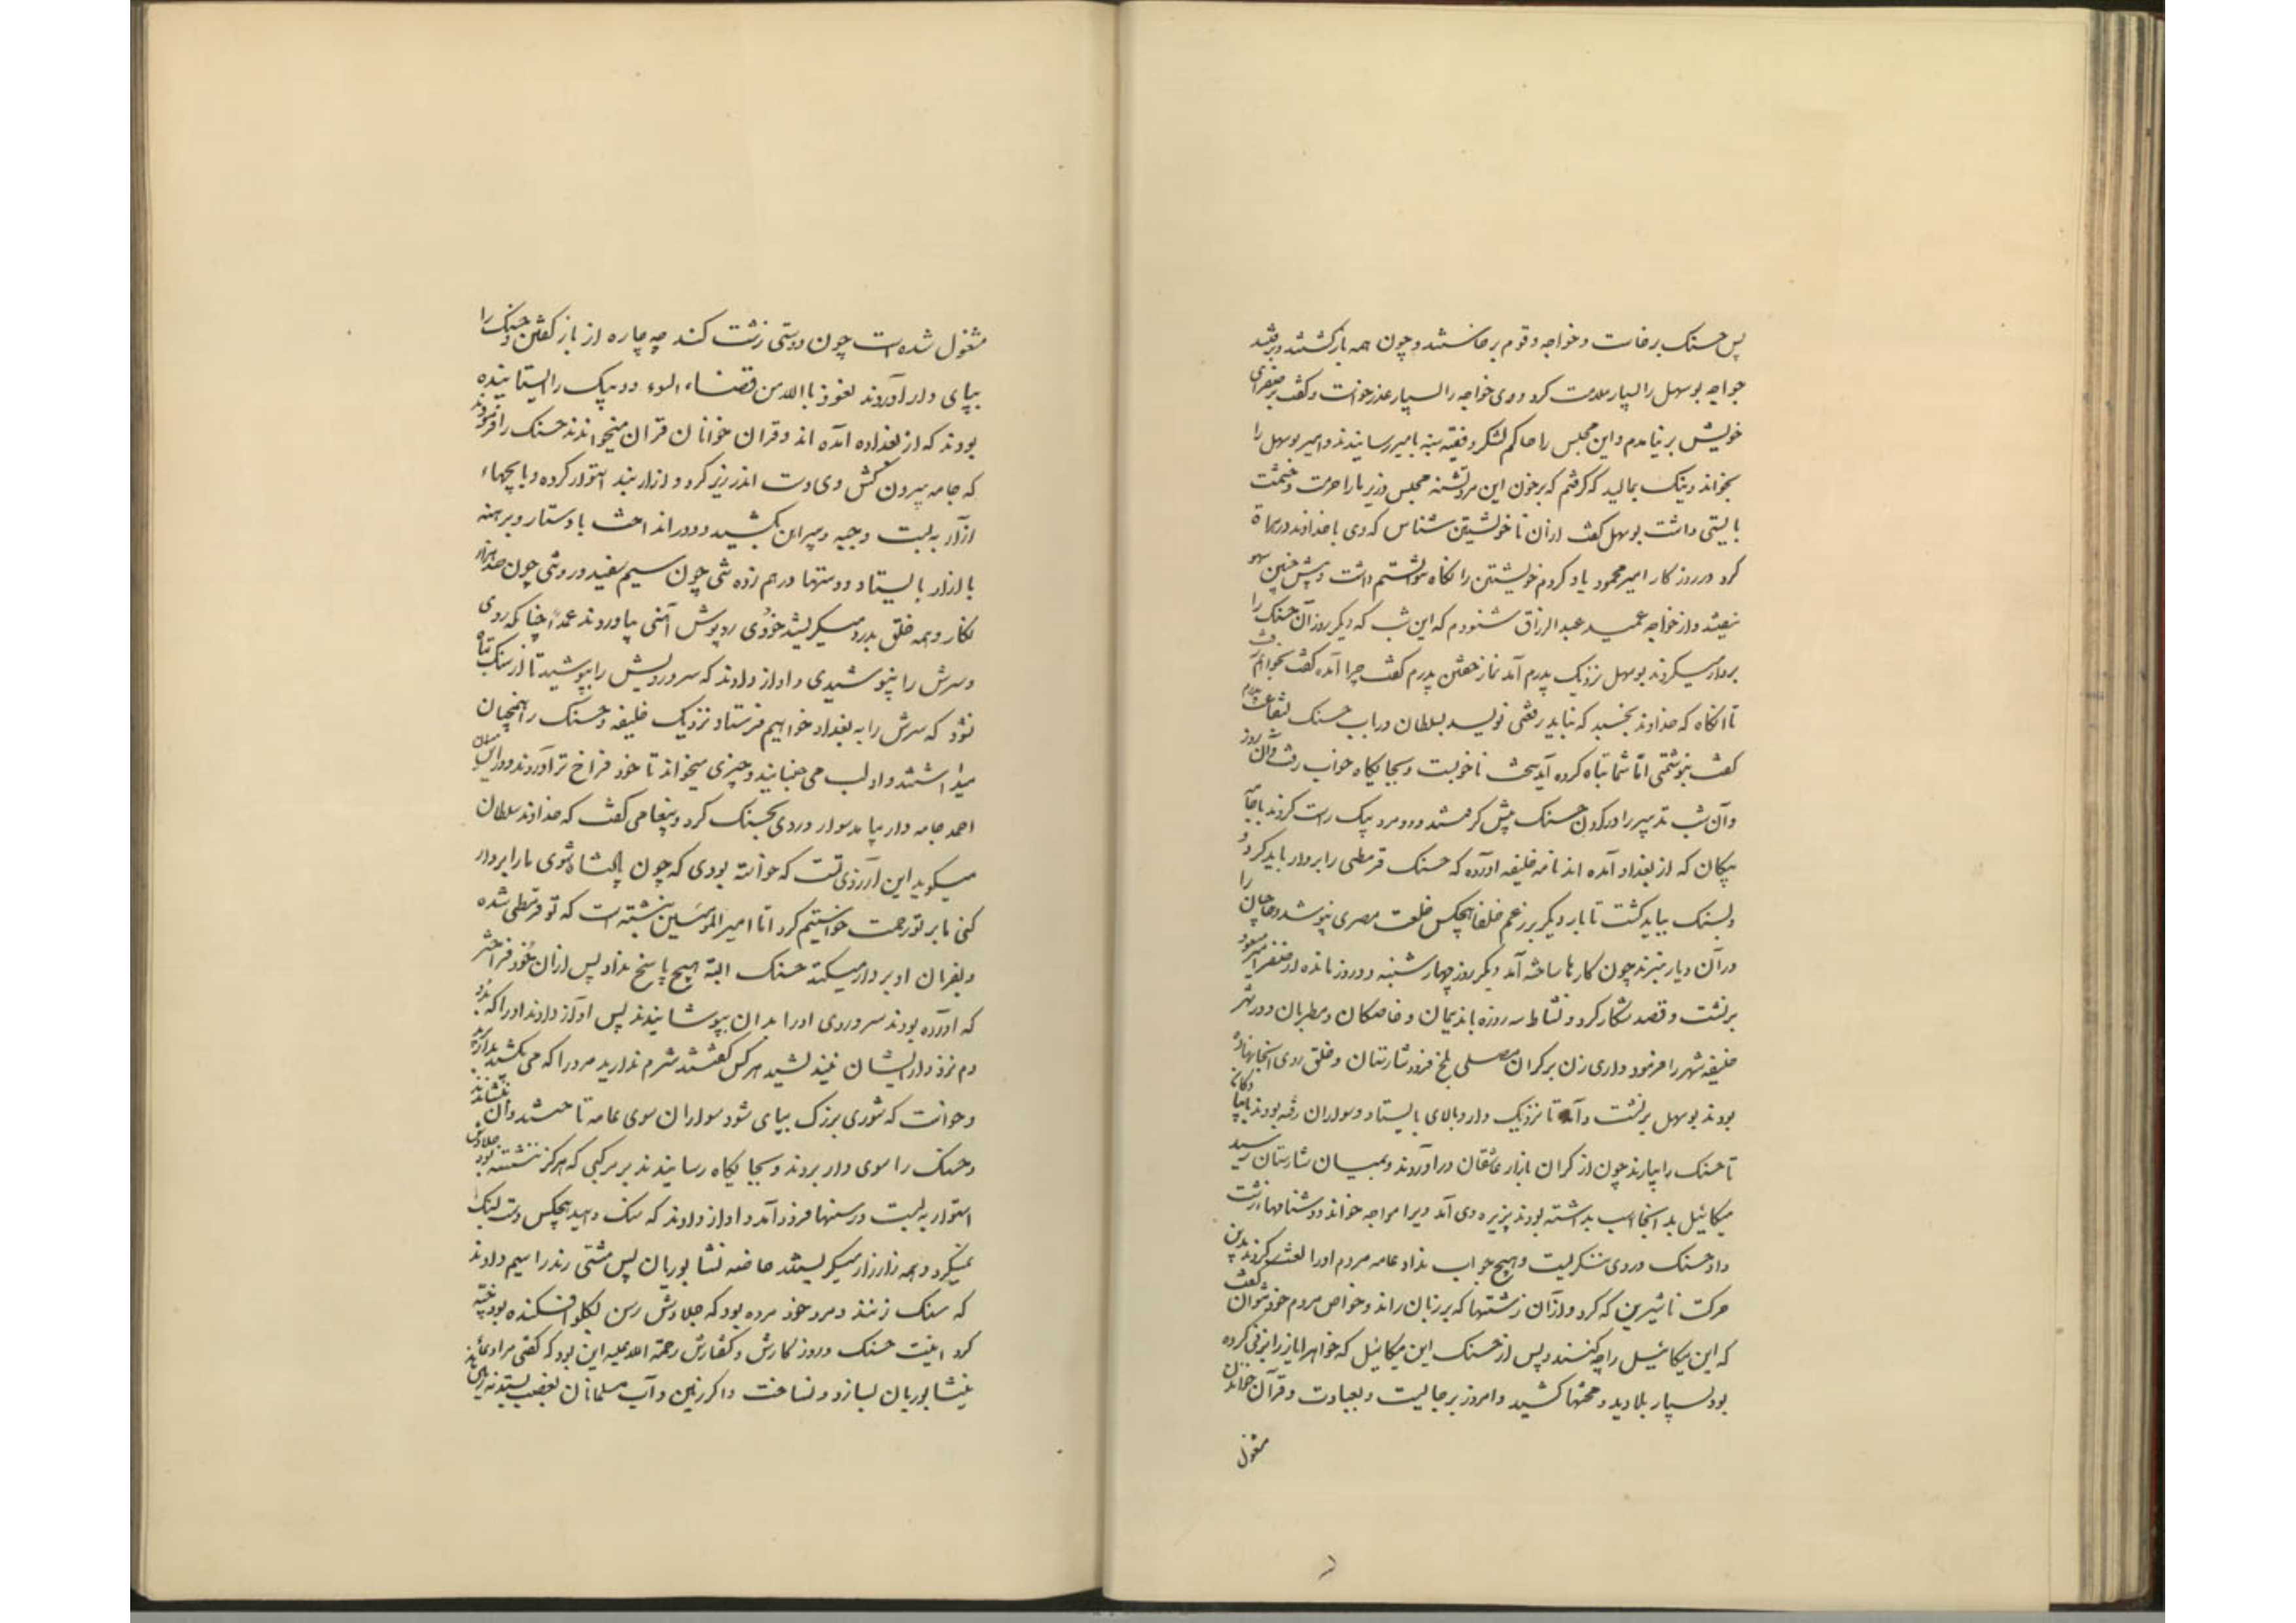 پس حسنک برخاست و خواجه و قوم برخاستند و چون همه بازگشتند و برفتند
خواجه بوسهل را بسیار ملامت کرد و وی خواجه را بسیار عذر خواست و گفت بر صفرای
خویش بر نیامدم و این مجلس را حاکم لشکر و فقیه نبیه بامیر رسانیدند و امیر بوسهل را
بخواند و نیک بمالید که گرفتم که بر خون این مرد تشنه مجلس وزیر ما را حرمت و حشمت
بایستی داشت بوسهل گفت از آن ناخویشتن شناس که وی با خداوند در هراة
کرد در روزکار امیر محمود یاد کردم خویشتن را نکاه نتوانستم داشت و بیش چنین سهو
نیفتد و از خواجه عمید عبدالرزاق شنودم که این شب که دیکر روز آن حسنک را
بردار میکردند بوسهل نزدیک پدرم آمد نماز خفتن پدرم گفت چرا آمده گفت نخواهم رفت
تا انکاه که خداوند بخسبد که نباید رقعتی نویسد بسلطان در باب حسنک بشفاعت پدرم
گفت بنوشتمی اما شما تباه کرده آید سخت ناخوبست و بجایکاه خواب رفت و آن روز
و آن شب تدبیر بر دار کردن حسنک پیش گرفتند و دو مرد پیک راست کردند با جامه
پیکان که از بغداد آمده اند و نامه خلیفه آورده که حسنک قرمطی را بردار باید کرد و
بسنک بباید کشت تا بار دیگر بر رغم خلفا هیچکس خلعت مصری نپوشد و حاجیان را
در آن دیار نبرند چون کارها ساخته آمد دیگر روز چهارشنبه دو روز مانده از صفر امیر مسعود
برنشست و قصد شکار کرد و نشاط سه روزه با ندیمان و خاصکان و مطربان و در شهر
خلیفه شهر را فرمود داری زدن بر کران مصلی بلخ فرود شارستان و خلق روی آنجا نهاده
بودند بوسهل برنشست و آمد تا نزدیک دار و بالای بایستاد و سواران رفته بودند با پیادکان
تا حسنک را بیارند چون از کران بازار عاشقان درآوردند و بمیان شارستان رسید
میکائیل بدانجا اسب بداشته بود پذیره وی آمد ویرا مواجر خواند و دشنامهاء زشت
داد حسنک در وی ننگریست و هیچ جواب نداد عامه مردم او را لعنت کردند بدین
حرکت ناشیرین که کرد و از آن زشتیها که بر زبان راند و خواص مردم خود نتوان گفت
که این میکائیل را چه کنند و پس از حسنک این میکائیل که خواهر ایاز را بزنی کرده
بود بسیار بلا دید و محنتها کشید و امروز برجایست و بعبادت و قرآن خواندن
مشغول
مشغول شده است چون دوستی زشت کند چه چاره از باز گفتن و حسنک را
بپای دار آوردند نعوذ باالله من قضاء السوء دو پیک را ایستانیده
بودند که از بغداد آمده اند و قرآن خوانان قرآن میخواندند حسنک را فرمودند
که جامه بیرون کش وی دست اندر زیر کرد و ازار بند استوار کرده و پایچهاء
ازار به بست و جبه و پیراهن بکشید و دور انداخت با دستار و برهنه
با ازار بایستاد و دستها درهم زده تنی چون سیم سفید و روئی چون صد هزار
نکار و همه خلق بدرد میکریستند خودی روپوش آهنی بیاوردند عمداً چنانکه روی
و سرش را نپوشیدی و آواز دادند که سر و رویش را بپوشید تا از سنک تباه
نشود که سرش را به بغداد خواهیم فرستاد نزدیک خلیفه و حسنک را همچنان
میداشتند و او لب می جنبانید و چیزی میخواند تا خود فراخ تر آوردند و در این میان
احمد جامه دار بیامد سوار و روی بحسنک کرد و پیغامی گفت که خداوند سلطان
میگوید این آرزوی تست که خواسته بودی که چون پادشاه شوی ما را بردار
کنی ما بر تو رحمت خواستیم کرد اما امیرالمؤمنین نبشته است که تو قرمطی شده
و بفرمان او بردار میکنند حسنک البته هیچ پاسخ نداد پس از آن خود فراختر
که آورده بودند سر و روی او را بدان بپوشانیدند پس آواز دادند او را که بدو
دم نزد و از ایشان نیندیشید هر کس گفتند شرم ندارید مرد را که می بکشید بدار برید
و خواست که شوری بزرک بپای شود سواران سوی عامه تاختند و آن بنشاندند
و حسنک را سوی دار بردند و بجایکاه رسانیدند بر مرکبی که هرگز ننشسته بود جلادش
استوار به بست و رسنها فرود آمد و آواز دادند که سنک دهید هیچکس دست بسنک
نمیکرد و همه زار زار میکریستند خاصه نشابوریان پس مشتی رند را سیم دادند
که سنک زنند و مرد خود مرده بود که جلادش رسن بگلو افکنده بود خبه
کرد اینست حسنک و روزگارش و گفتارش رحمة الله علیه این بود که گفتی مرا دعاء
نیشابوریان بسازد و نساخت و اگر زمین و آب مسلمانان بغصب بستد نه زمین